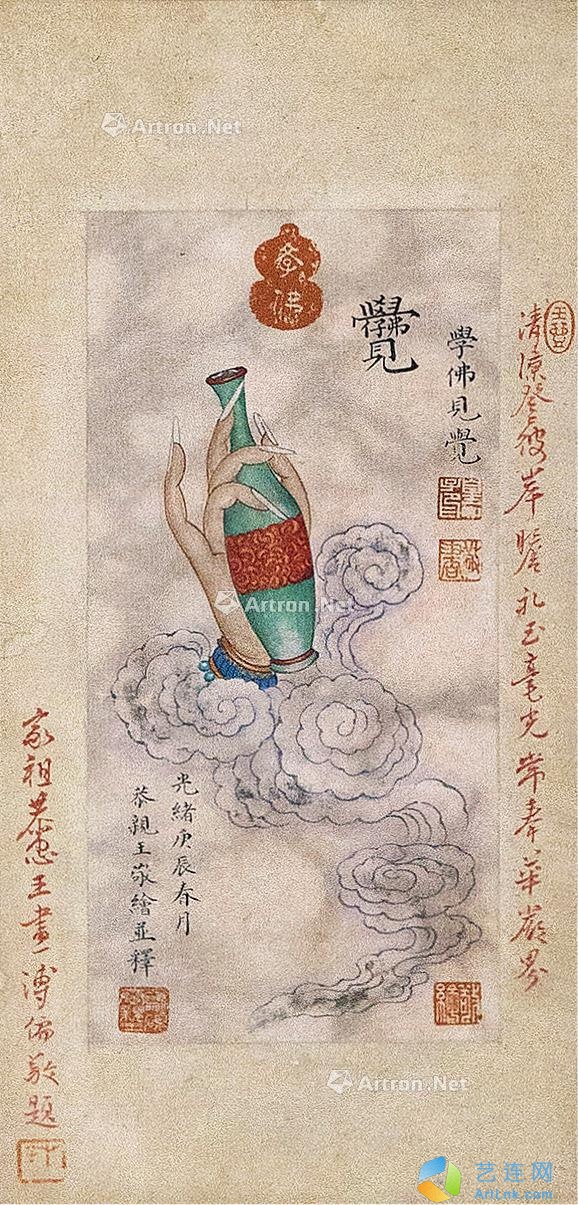 Artron.Net
學佛見覺
清涼登彼岸瞻礼玉毫光常奉華嚴界
Artron.Net
光緒庚辰春月
恭親王敬繪並釋
家祖恭忠王畫溥儒敬題
Artron.Net
艺连网
ArtLnk.Com